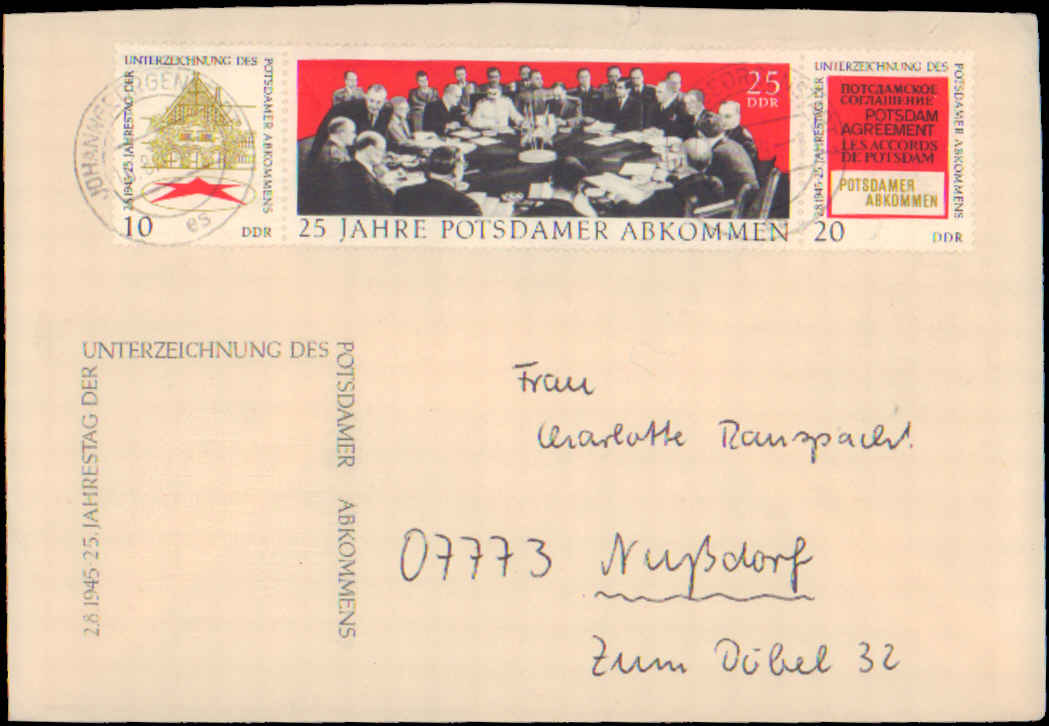 UNTERZEICHNUNG DES
POTSDAMER ABKOMMENS
2.8.1945·25.JAHRESTAG DER
10
DDR
JOHANN
es
25
DDR
25 JAHRE POTSDAMER ABKOMMEN
UNTERZEICHNUNG DES
POTSDAMER ABKOMMENS
2.8.1945·25.JAHRESTAG DER
ПОТСДАМСКОЕ
СОГЛАШЕНИЕ
POTSDAM
AGREEMENT
LES ACCORDS
DE POTSDAM
POTSDAMER
ABKOMMEN
20
DDR
UNTERZEICHNUNG DES
POTSDAMER ABKOMMENS
2.8.1945·25.JAHRESTAG DER
Frau
Charlotte Ranspacht
07773 Nußdorf
Zum Dobel 32